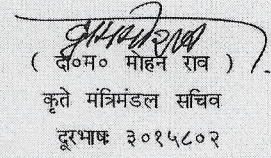 ( दी०म० मोहन राव )
कृते मंत्रिमंडल सचिव
दूरभाषः ३०१५८०२